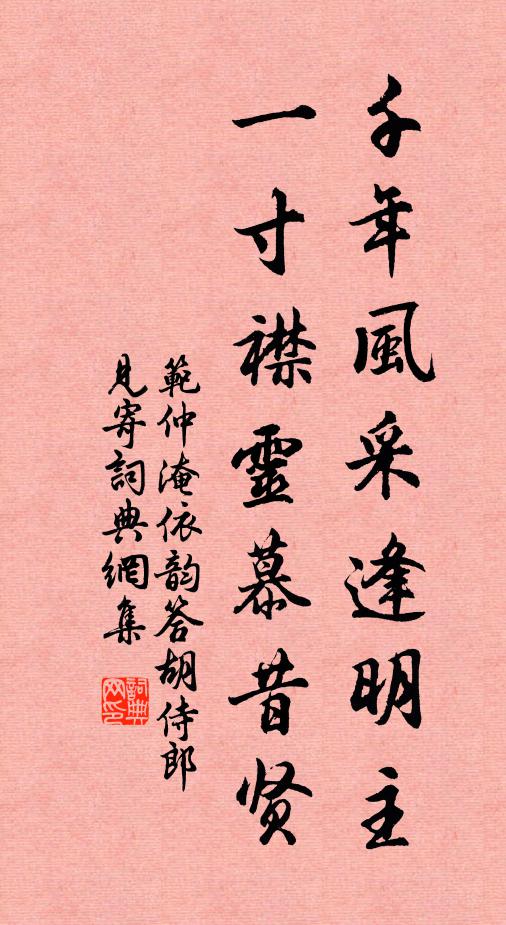 千年風采逢明主
一寸襟靈慕昔贤
範仲淹依韵答胡侍郎
見寄詞典網集
詞典网印